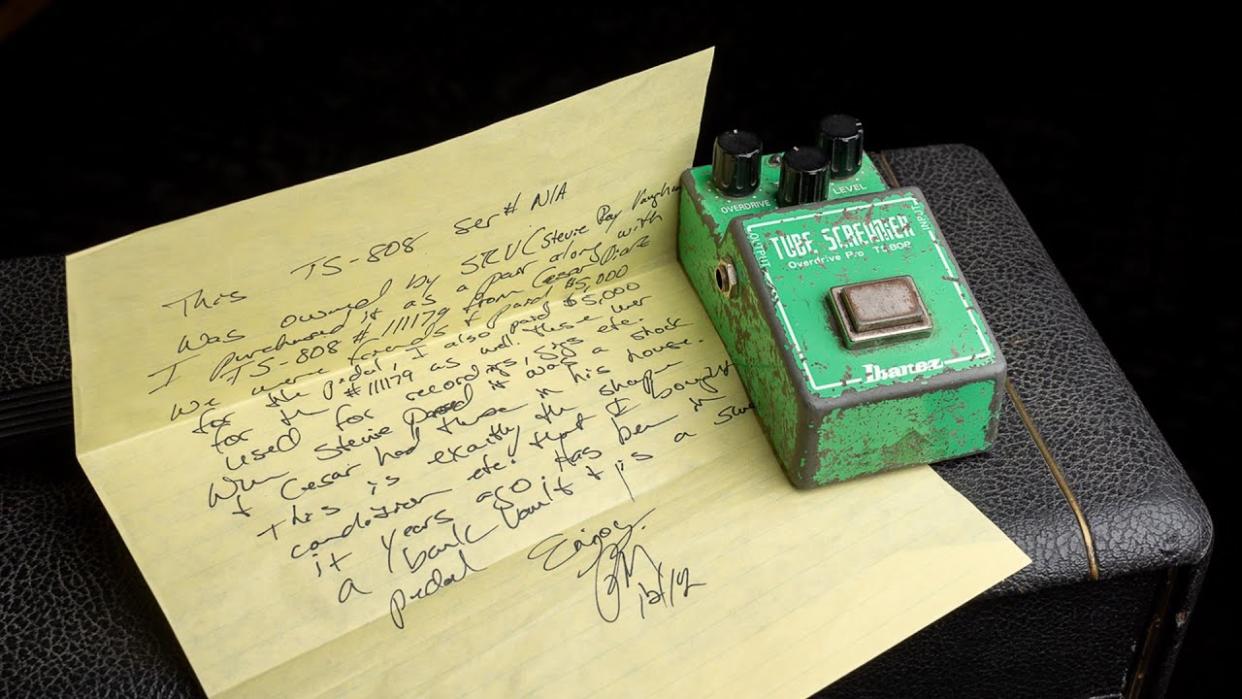 This TS-808 ser# N/A
was owned by SRV (Stevie Ray Vaughan
I purchased it as a pair along with
TS-808 #111179 from Cesar Diaz
we were friends & I paid $5,000
for the pedal, I also paid $5,000
for the #111179 as well. These were
used for recordings, gigs etc.
When Stevie passed it was a shock
& Cesar had these in his house.
This is exactly the shape
condition etc. that I bought
it years ago. Has been in
a bank vault & is a
pedal
Enjoy.
12/12
OVERDRIVE
LEVEL
INPUT
OUTPUT
TUBE SCREAMER
Overdrive Pro TS808
Ibanez